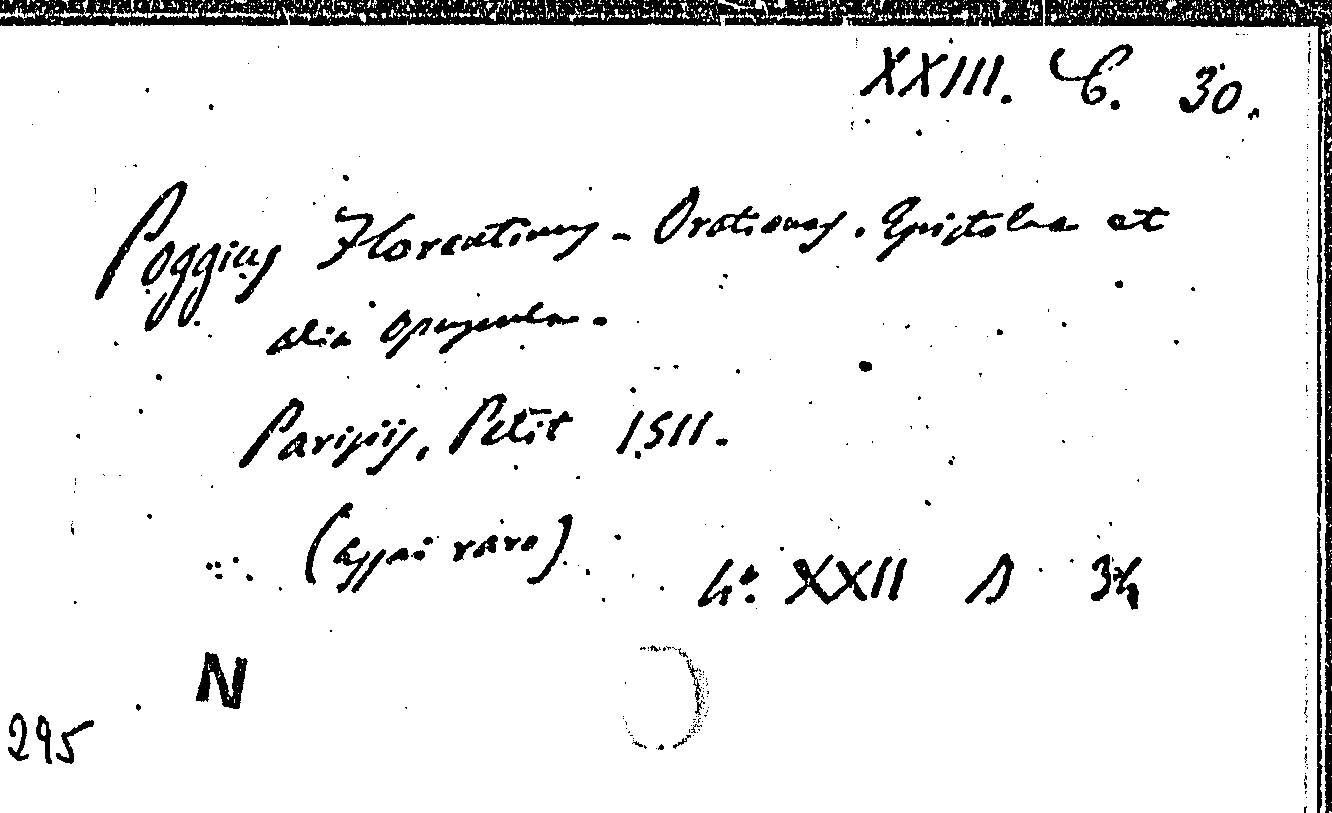 XXIII. C. 30.
Poggius Florentinus - Orationes. Epistolae et
alia opuscula.
Parisiis, Petit 1511.
(assai raro)
4º. XXII D 34
N
295